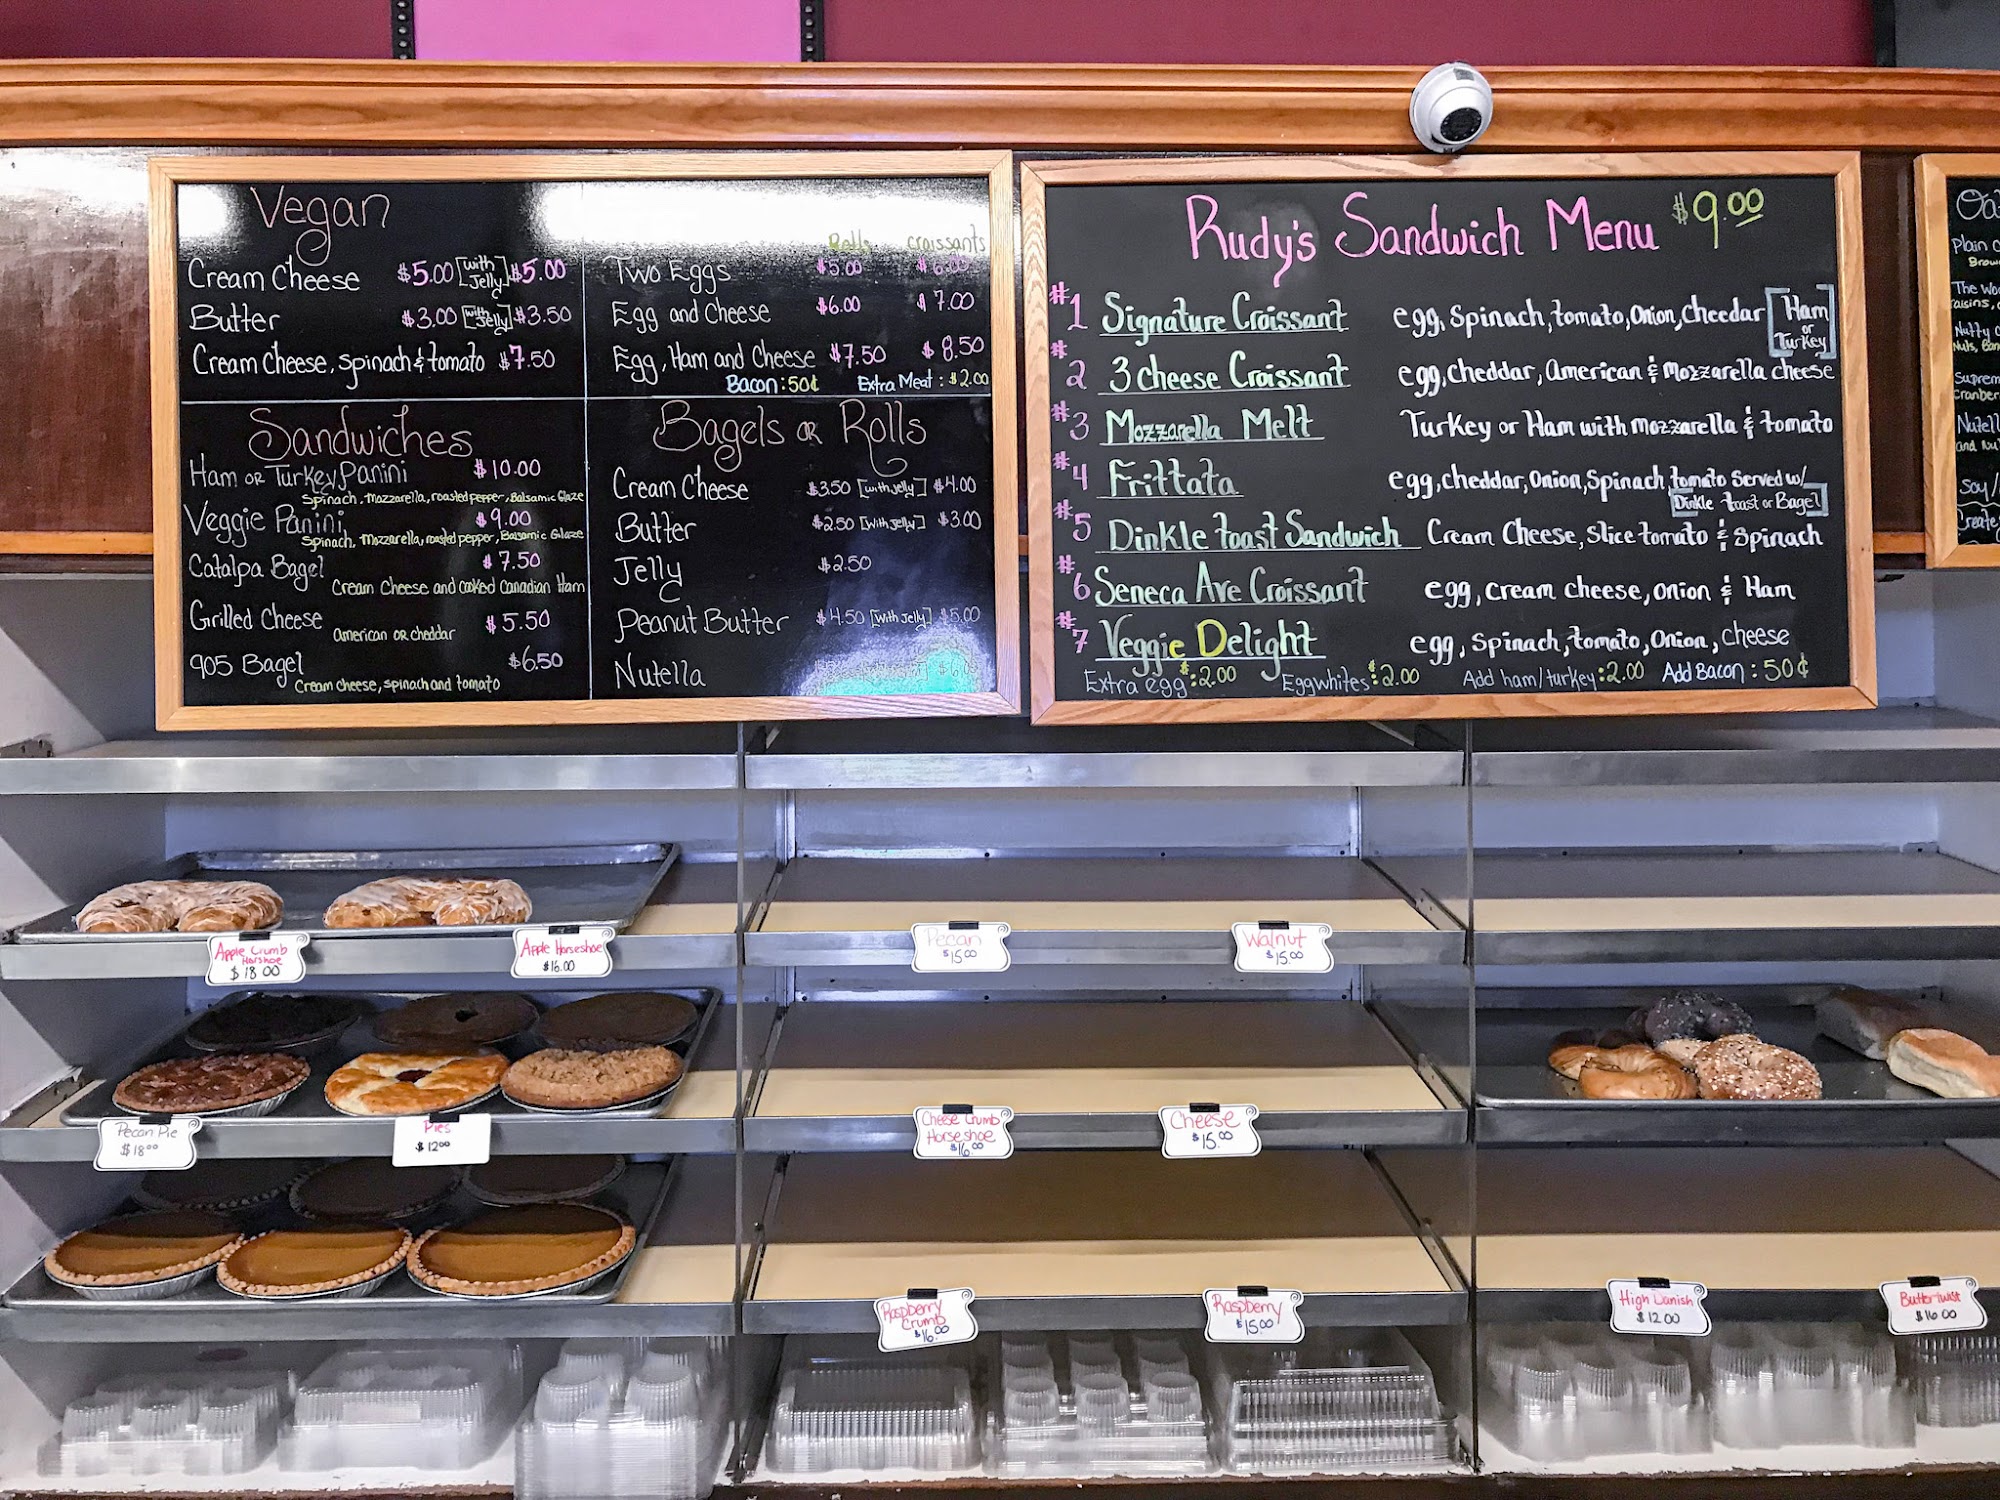 Vegan
Cream Cheese $5.00 [with Jelly] $5.00
Butter $3.00 [with Jelly] $3.50
Cream Cheese, Spinach & tomato $7.50
Rolls croissants
Two Eggs $5.00 $6.00
Egg and Cheese $6.00 $7.00
Egg, Ham and Cheese $7.50 $8.50
Bacon: 50¢ Extra Meat: $2.00
Sandwiches
Ham or Turkey Panini $10.00
Spinach, mozzarella, roasted pepper, Balsamic Glaze
Veggie Panini $9.00
Spinach, mozzarella, roasted pepper, Balsamic Glaze
Catalpa Bagel $7.50
Cream Cheese and cooked Canadian Ham
Grilled Cheese $5.50
American or cheddar
905 Bagel $6.50
Cream cheese, spinach and tomato
Bagels or Rolls
Cream Cheese $3.50 [with jelly] $4.00
Butter $2.50 [with jelly] $3.00
Jelly $2.50
Peanut Butter $4.50 [with jelly] $5.00
Nutella
Rudy's Sandwich Menu $9.00
#1 Signature Croissant egg, Spinach, tomato, Onion, Cheedar [Ham
or
Turkey]
#2 3 cheese Croissant egg, cheddar, American & mozzarella cheese
#3 Mozzarella Melt Turkey or Ham with mozzarella & tomato
#4 Frittata egg, cheddar, Onion, Spinach, tomato Served w/
[Dinkle toast or Bagel]
#5 Dinkle toast Sandwich Cream Cheese, Slice tomato & Spinach
#6 Seneca Ave Croissant egg, cream cheese, onion & Ham
#7 Veggie Delight egg, Spinach, tomato, Onion, cheese
Extra egg: $2.00 Eggwhites: $2.00 Add ham/turkey: 2.00 Add Bacon: 50¢
Plain
The
Nutty
Nuts,
Soy/
Create
Apple Crumb
Horshoe
$18.00
Apple Horseshoe
$16.00
Pecan
$15.00
Walnut
$15.00
Pecan Pie
$18.00
Pies
$12.00
Cheese Crumb
Horseshoe
$16.00
Cheese
$15.00
Raspberry
Crumb
$16.00
Raspberry
$15.00
High Danish
$12.00
Buttertwist
$16.00